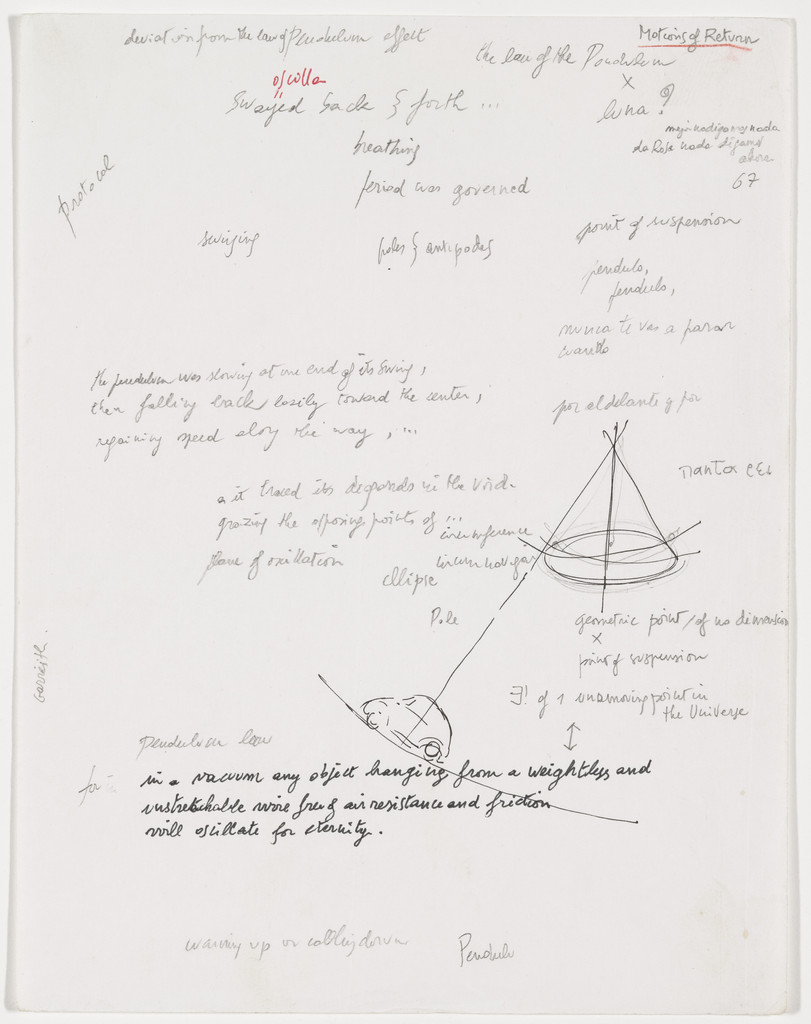 deviation from the law of Pendulum effect
Motions of Return
the law of the Pendulum
x
oscilla
swayed back & forth ...
luna?
nada
da Rosa nada digamos
ahora
breathing
67
period was governed
protocol
point of suspension
swinging
poles & antipodes
pendulo,
pendulo,
nunca te vas a parar
the pendulum was slowing at one end of its swing,
then falling back lazily toward the center,
regaining speed along the way, ...
por el delante y por
παντα ρεῖ
as it traced its diagonals in the void
grazing the opposing points of ...
circumference
plane of oscillation
ellipse
Pole
geometric point / of no dimension
x
point of suspension
∃! of 1 unmoving point in
the Universe
Pendulum law
for
in a vacuum any object hanging from a weightless and
unstretchable wire free of air resistance and friction
will oscillate for eternity.
warming up or cooling down
Pendulu